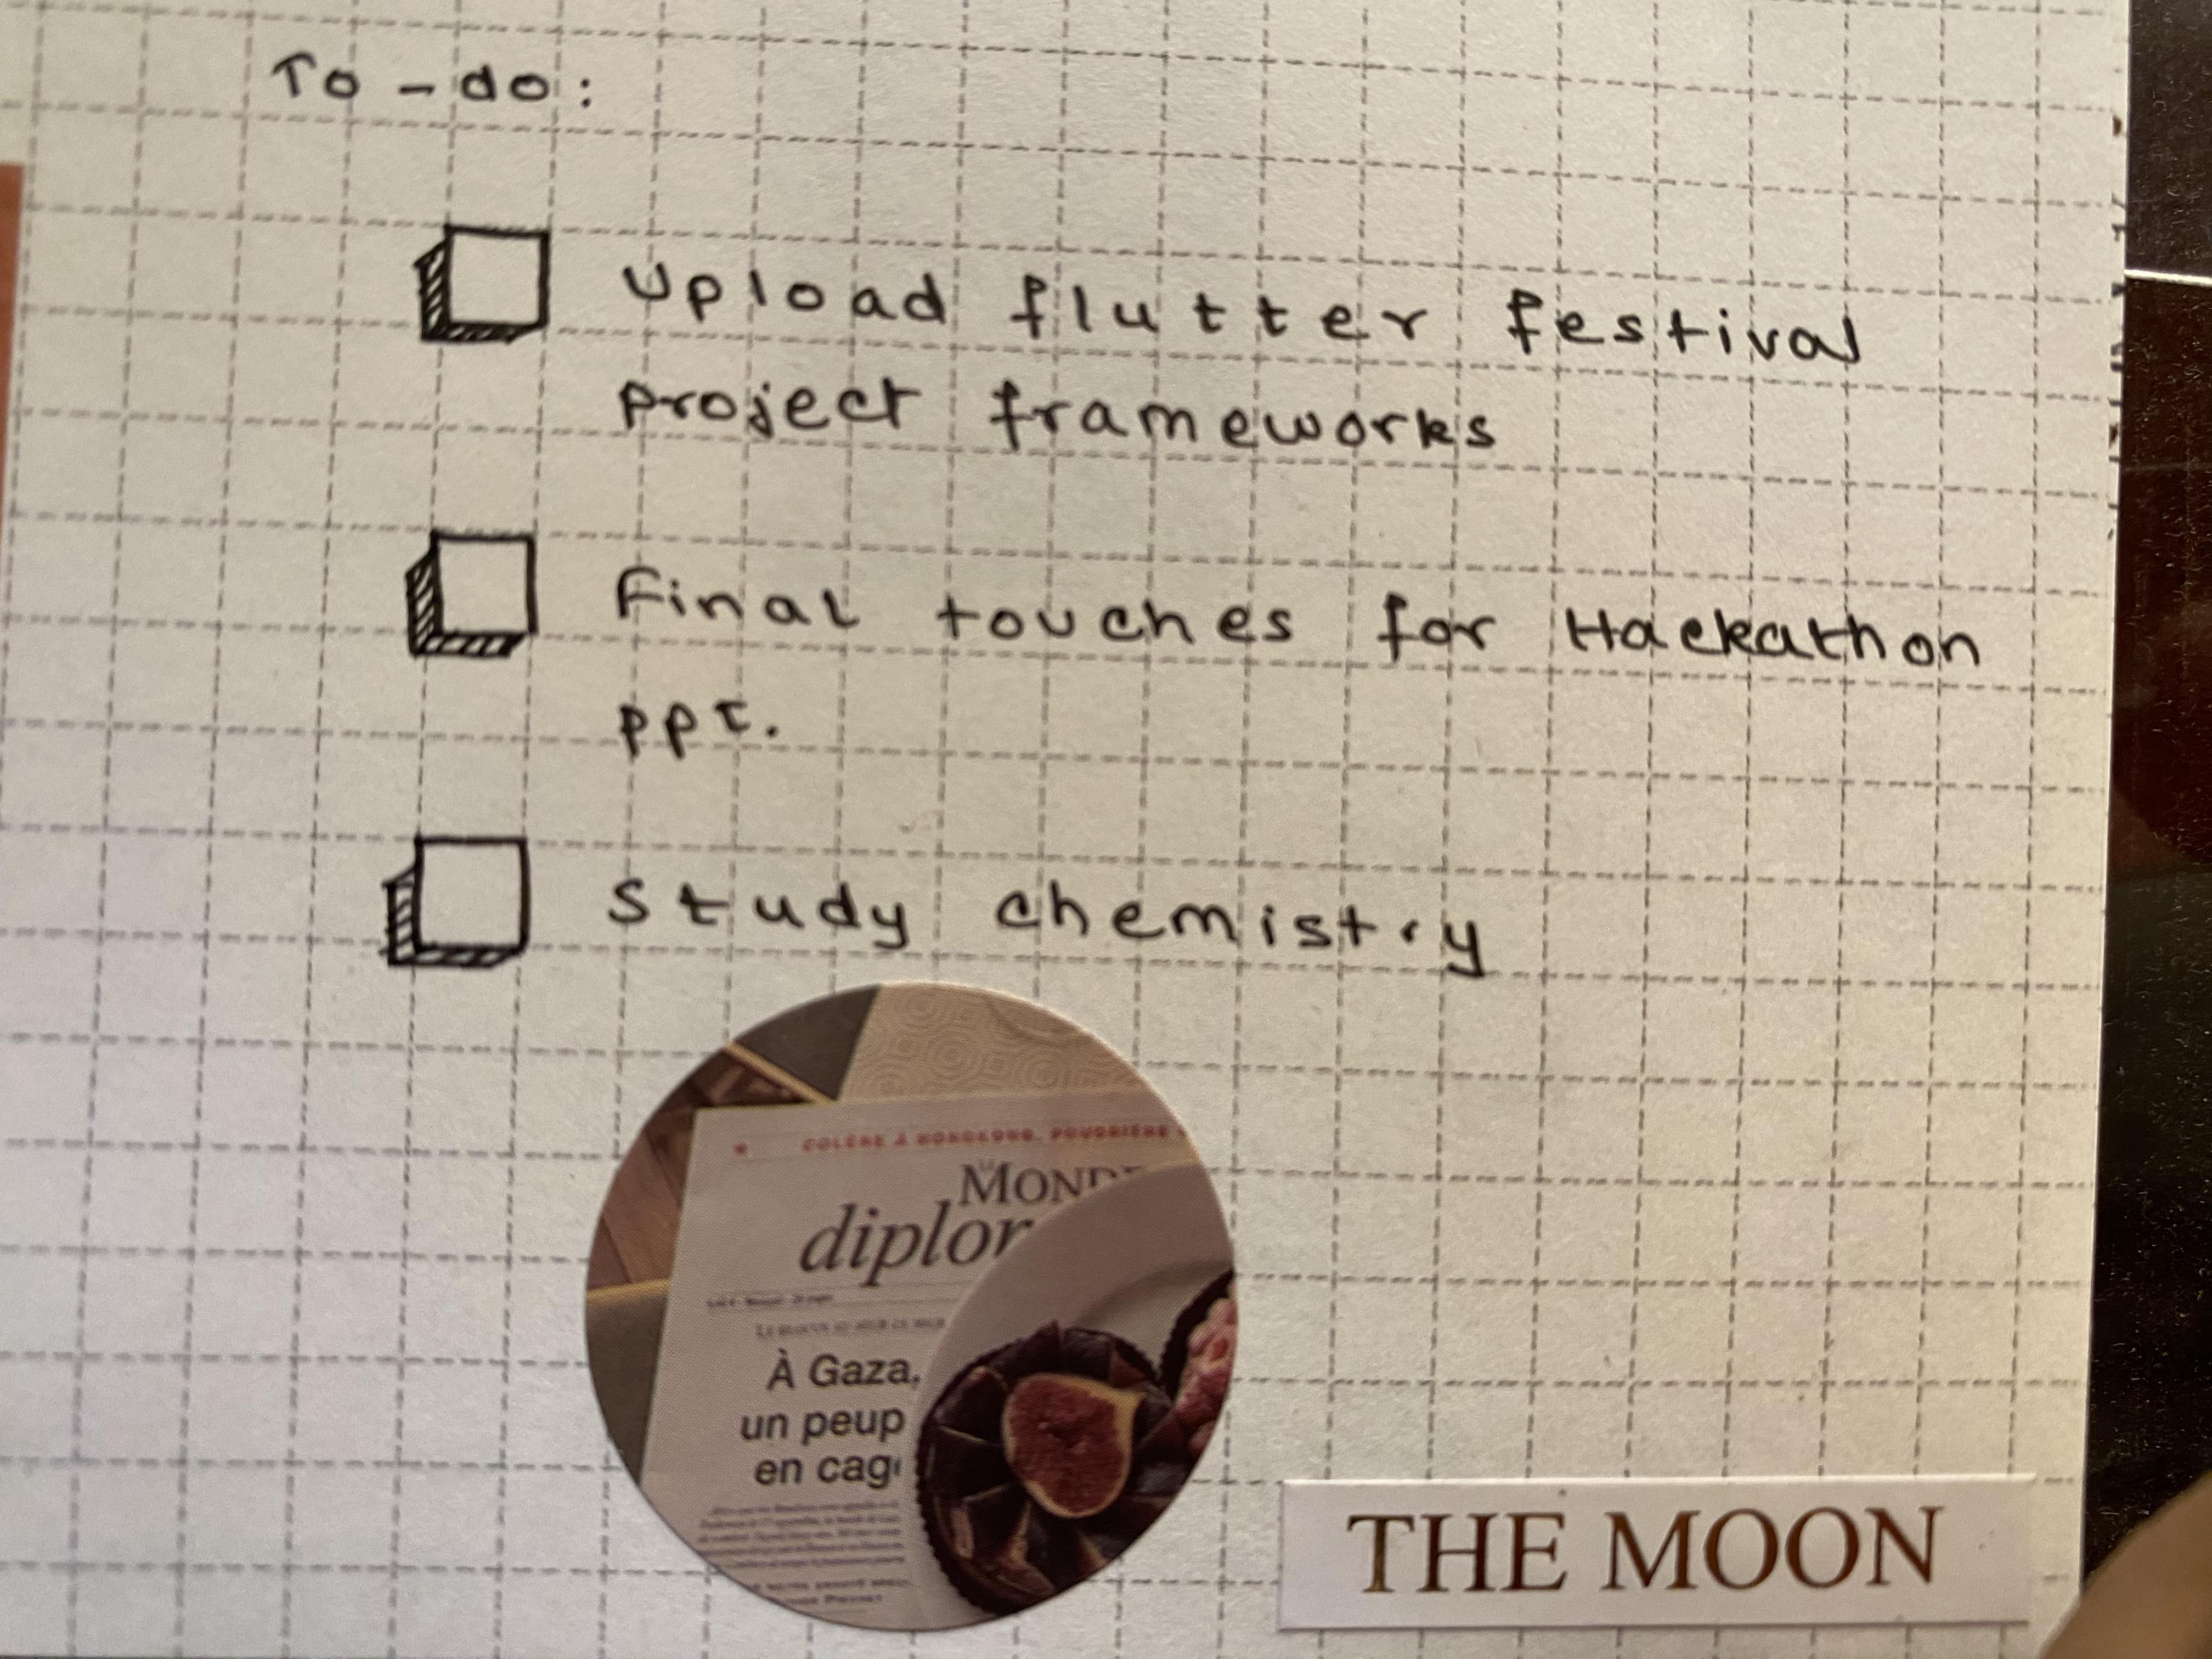 To-do:
Upload flutter festival
project frameworks
Final touches for Hackathon
ppt.
Study chemistry
COLÈRE À HONGKONG, POUDRIÈRE
MONDE
diplom
À Gaza,
un peup
en cag
THE MOON